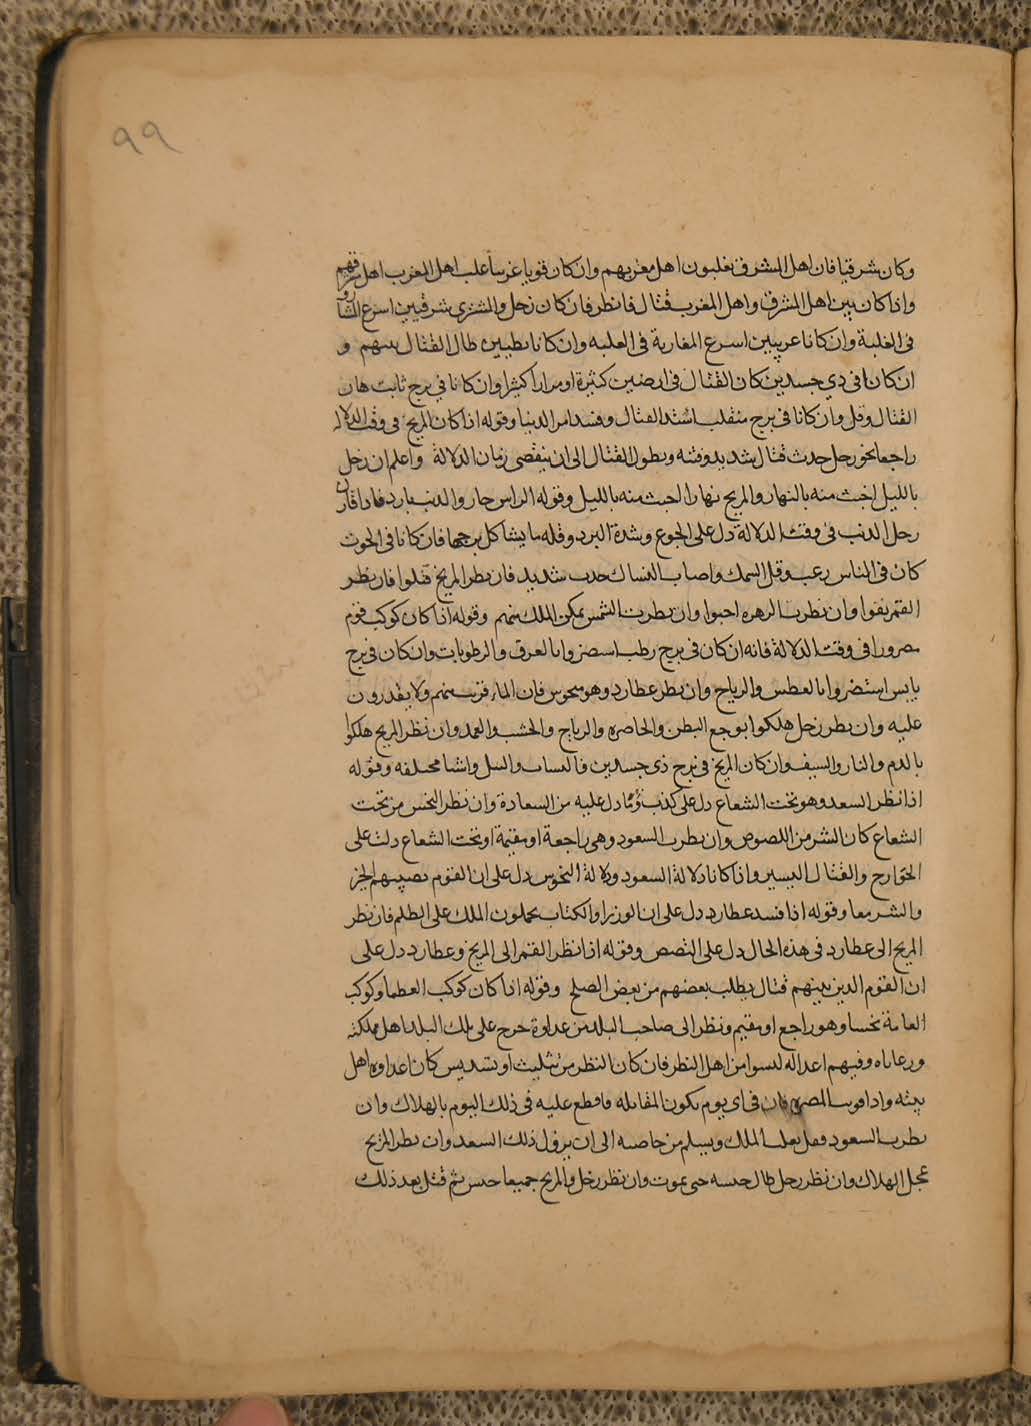 ٩٩
وكان شرقيا فان اهل المشرق يغلبون اهل مغربهم وان كان قويا غربيا غلب اهل المغرب اهل شرقهم
واذا كان بين اهل المشرق واهل المغرب قتال فانظر فان كان زحل والمشتري شرقيين اسرع المشارقة
في الغلبة وان كانا غربيين اسرع المغاربة في الغلبه وان كانا بطيين طال القتال بينهم و
ان كانا في ذي جسدين كان القتال في ارضين كثيرة او مرارا كثيرا وان كانا في برج ثابت هان
القتال وقل وان كانا في برج منقلب اشتد القتال وفسد امر الدنيا وقوله اذا كان المريخ في وقت الدلالة
راجعا نحو زحل حدث قتال شديد وفتنه ويطول القتال الى ان ينقضي زمان الدلالة واعلم ان زحل
بالليل اخبث منه بالنهار والمريخ نهارا اخبث منه بالليل وقوله الراس حار والذنب بارد فاذا قارن
زحل الذنب في وقت الدلالة دل على الجوع وشدة البرد وقله ما يشاكل برجهما فان كانا في الحوت
كان في الناس رعب وقل السمك واصاب النساك حدب شديد فان نظر المريخ قتلوا فان نظر
القمر نفوا وان نظرت الزهره احبوا وان نظرت الشمس تمكن الملك منهم وقوله اذا كان كوكب قوم
مضرورا في وقت الدلالة فانه ان كان في برج رطب استضروا بالغرق والرطوبات وان كان في برج
يابس استضروا بالعطس والرياح وان نظر عطارد وهو منحوس فان الماء قرب منهم ولا يقدرون
عليه وان نظر زحل هلكوا بوجع البطن والخاصره والرياح والخشب والعمد وان نظر المريخ هلكوا
بالدم والنار والسيف وان كان المريخ في برج ذي جسدين فالنساب والسل واشيا مختلفه وقوله
اذا نظر السعد وهو تحت الشعاع دل على كذب ما دل عليه من السعادة وان نظر النحس من تحت
الشعاع كان الشر من اللصوص وان نظرت السعود وهي راجعة او مقيمة او تحت الشعاع دلت على
الخوارج والقتال اليسير واذا كانا دلالة السعود ودلالة النحوس دل على ان القوم تصيبهم الخير
والشر معا وقوله اذا فسد عطارد دل على ان الوزرا والكتاب يحملون الملك على الظلم فان نظر
المريخ الى عطارد في هذه الحال دل على اللصص وقوله اذا نظر القمر الى المريخ وعطارد دل على
ان القوم الذين بينهم قتال يطلب بعضهم من بعض الصلح وقوله اذا كان كوكب العظما وكوكب
العامة نحسا وهو راجع او مقيم ونظر الى صاحب البلد من عداوة خرج على ملك البلد اهل مملكته
ورعاياه وفيهم اعدا له ليسوا من اهل النظر فان كان النظر من تثليث او تسديس كان اعداوه اهل
بيته واذا في اي يوم تكون المقابله فاقطع عليه في ذلك اليوم بالهلاك وان
نظرت السعود الملك ويسلم من الى ان يزول ذلك السعد وان نظر المريخ
عجل الهلاك وان نظر زحل طال حبسه حتى يموت وان نظر زحل والمريخ جميعا حبس ثم قتل بعد ذلك